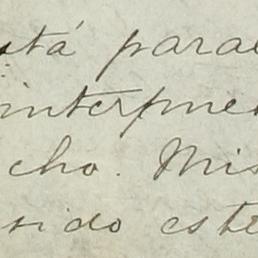 stá para
interpue
cho. Mis
sido este